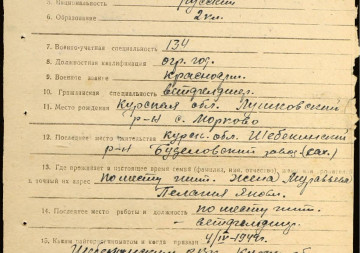 5. Национальность Русский
6. Образование 2 кл.
7. Военно-учетная специальность 134
8. Должностная квалификация огр. год.
9. Военное звание Красноарм.
10. Гражданская специальность ветфельдшер.
11. Место рождения Курская обл.
р-н с.
12. Последнее место жительства Курск. обл. Шебекинский
р-н завод (сах.)
13. Где проживает в настоящее время семья (фамилия, имя,
и точный их адрес по месту жит. Жена Муравьева
Пелагия Яков.
14. Последнее место работы и должность по месту жит.
ветфельдшер.
15. Каким райвоенкоматом и когда призван 4/IV-1944г.